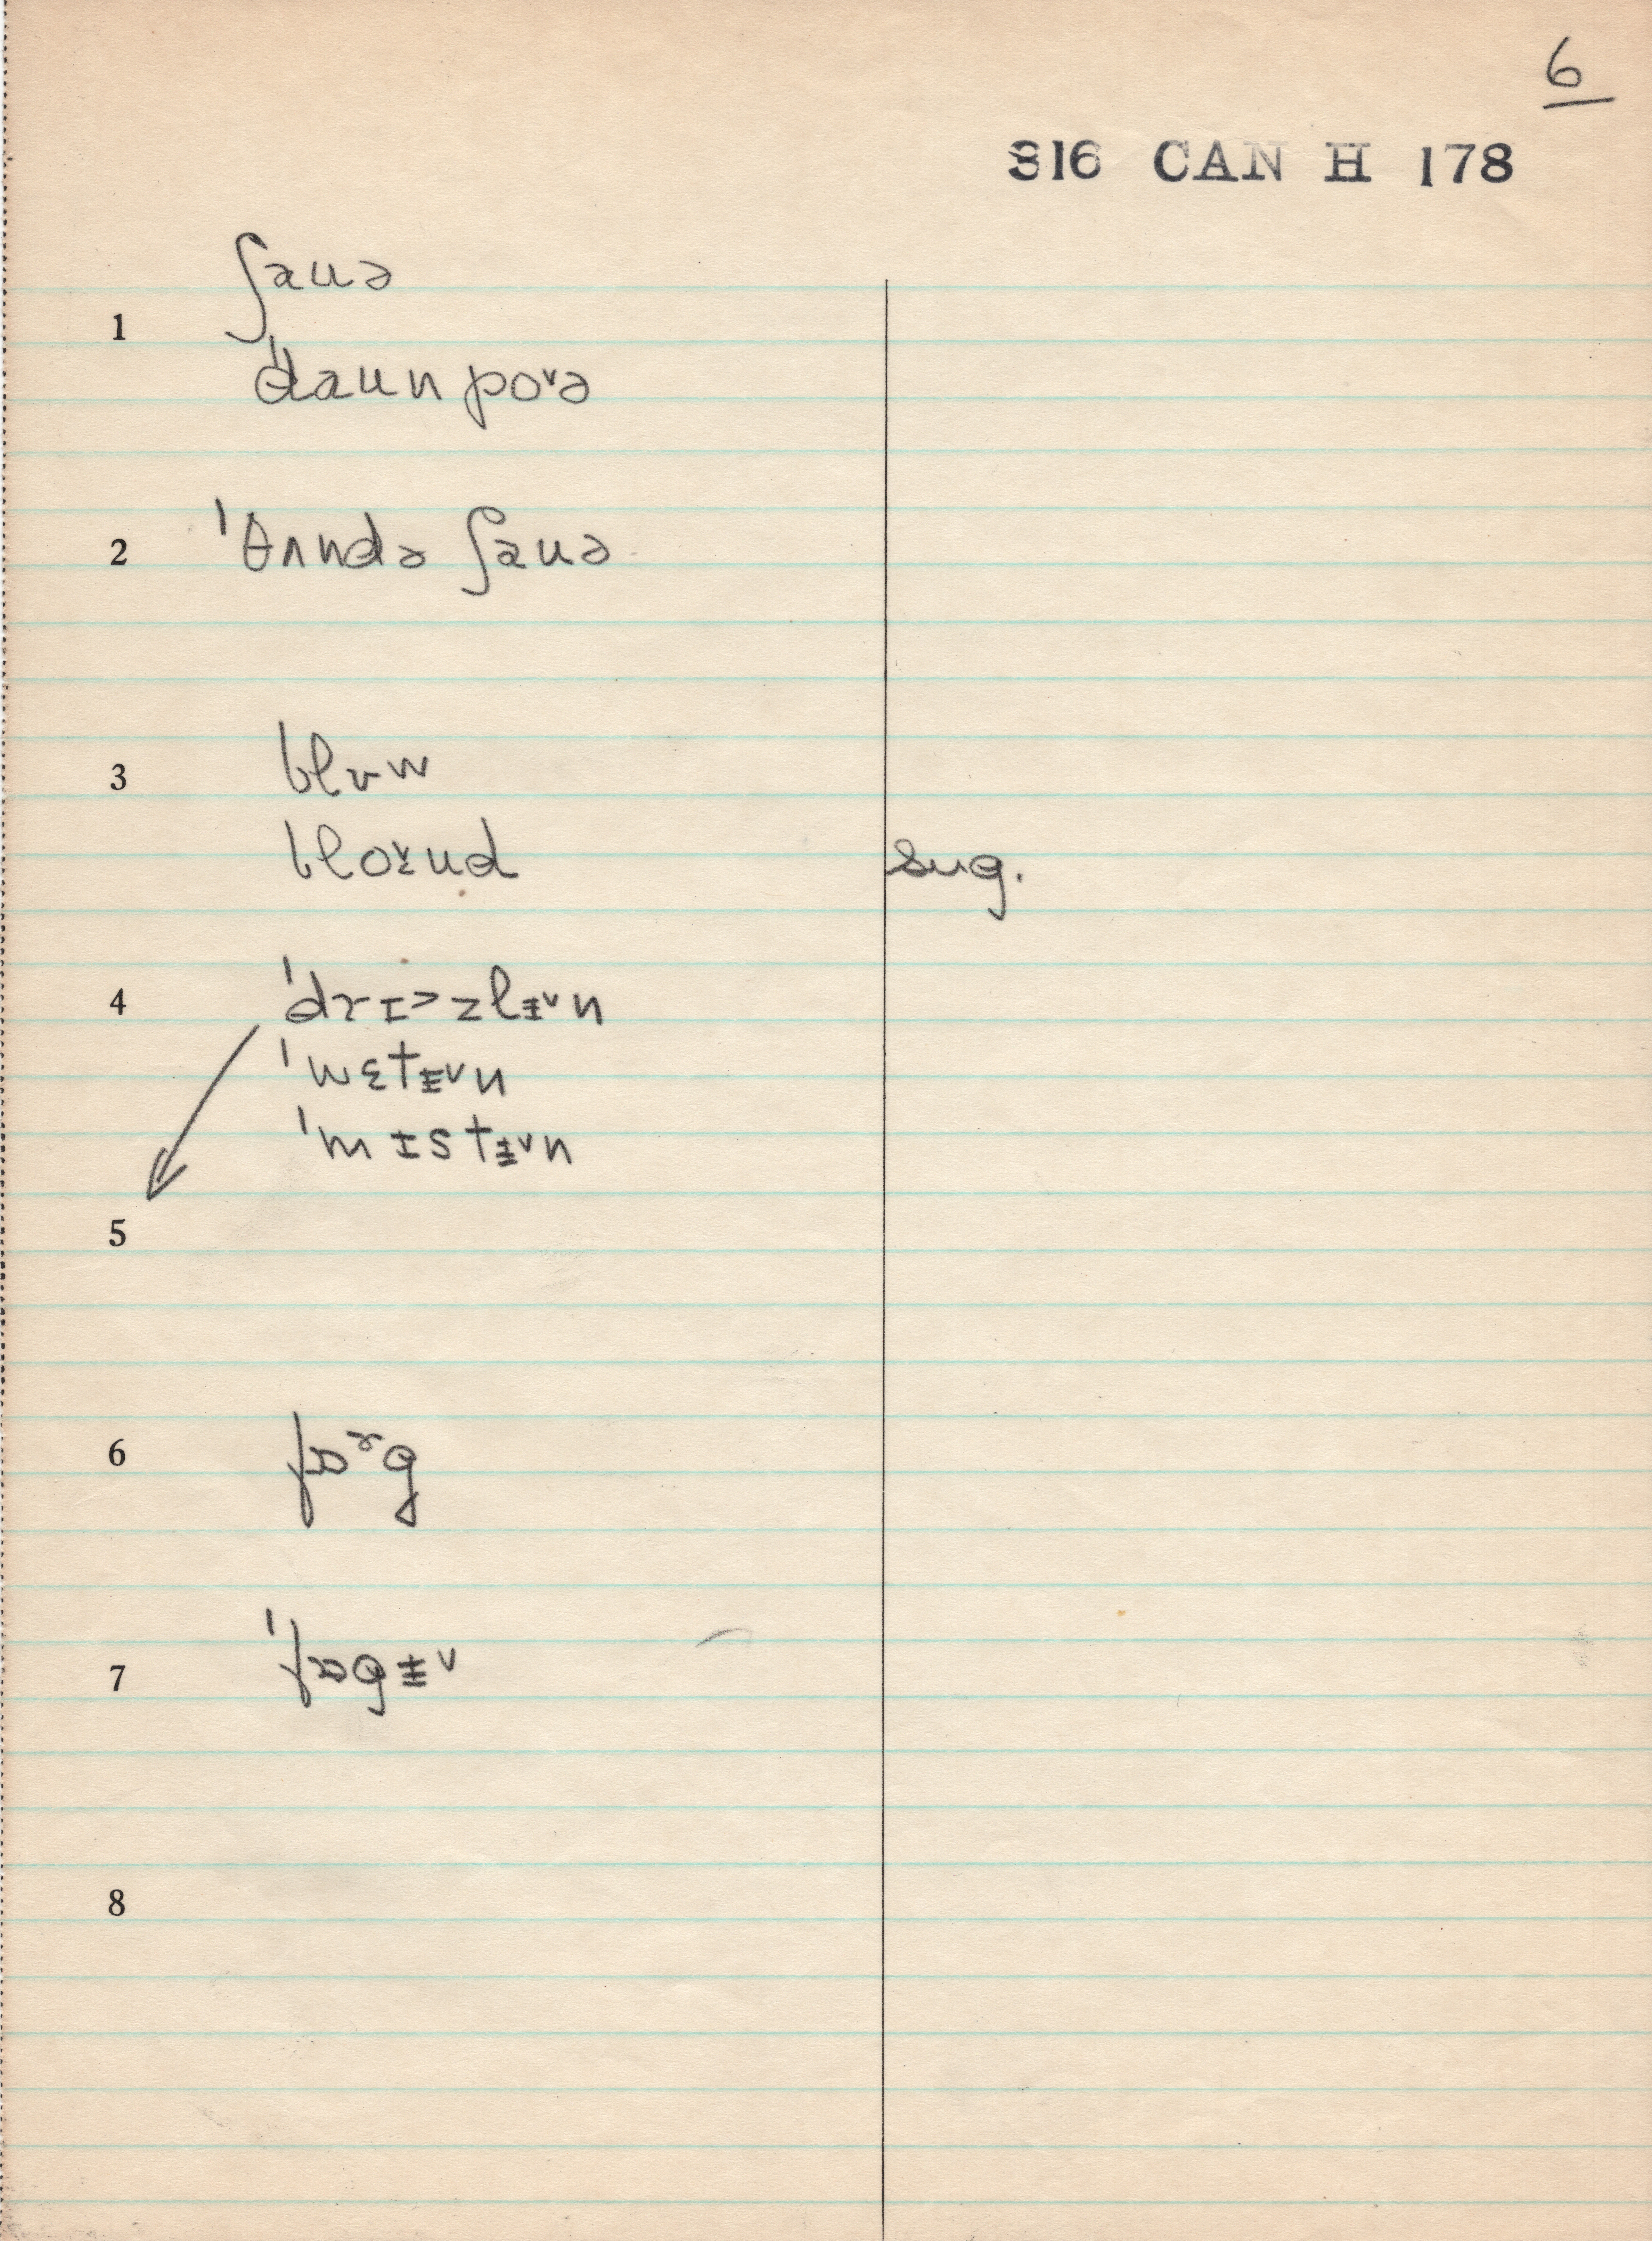 6
316 CAN H 178
1 ʃauə
ˈdaunpo˅ə
2 ˈθʌndə ʃauə
3 blʊw
blo˅ud sug.
4 ˈdrɪ˃zlɪ̵˅n
ˈwɛtɪ̵˅n
ˈmɪstɪ̵˅n
5
6 fɒʳg
7 ˈfɒgɪ̵˅
8